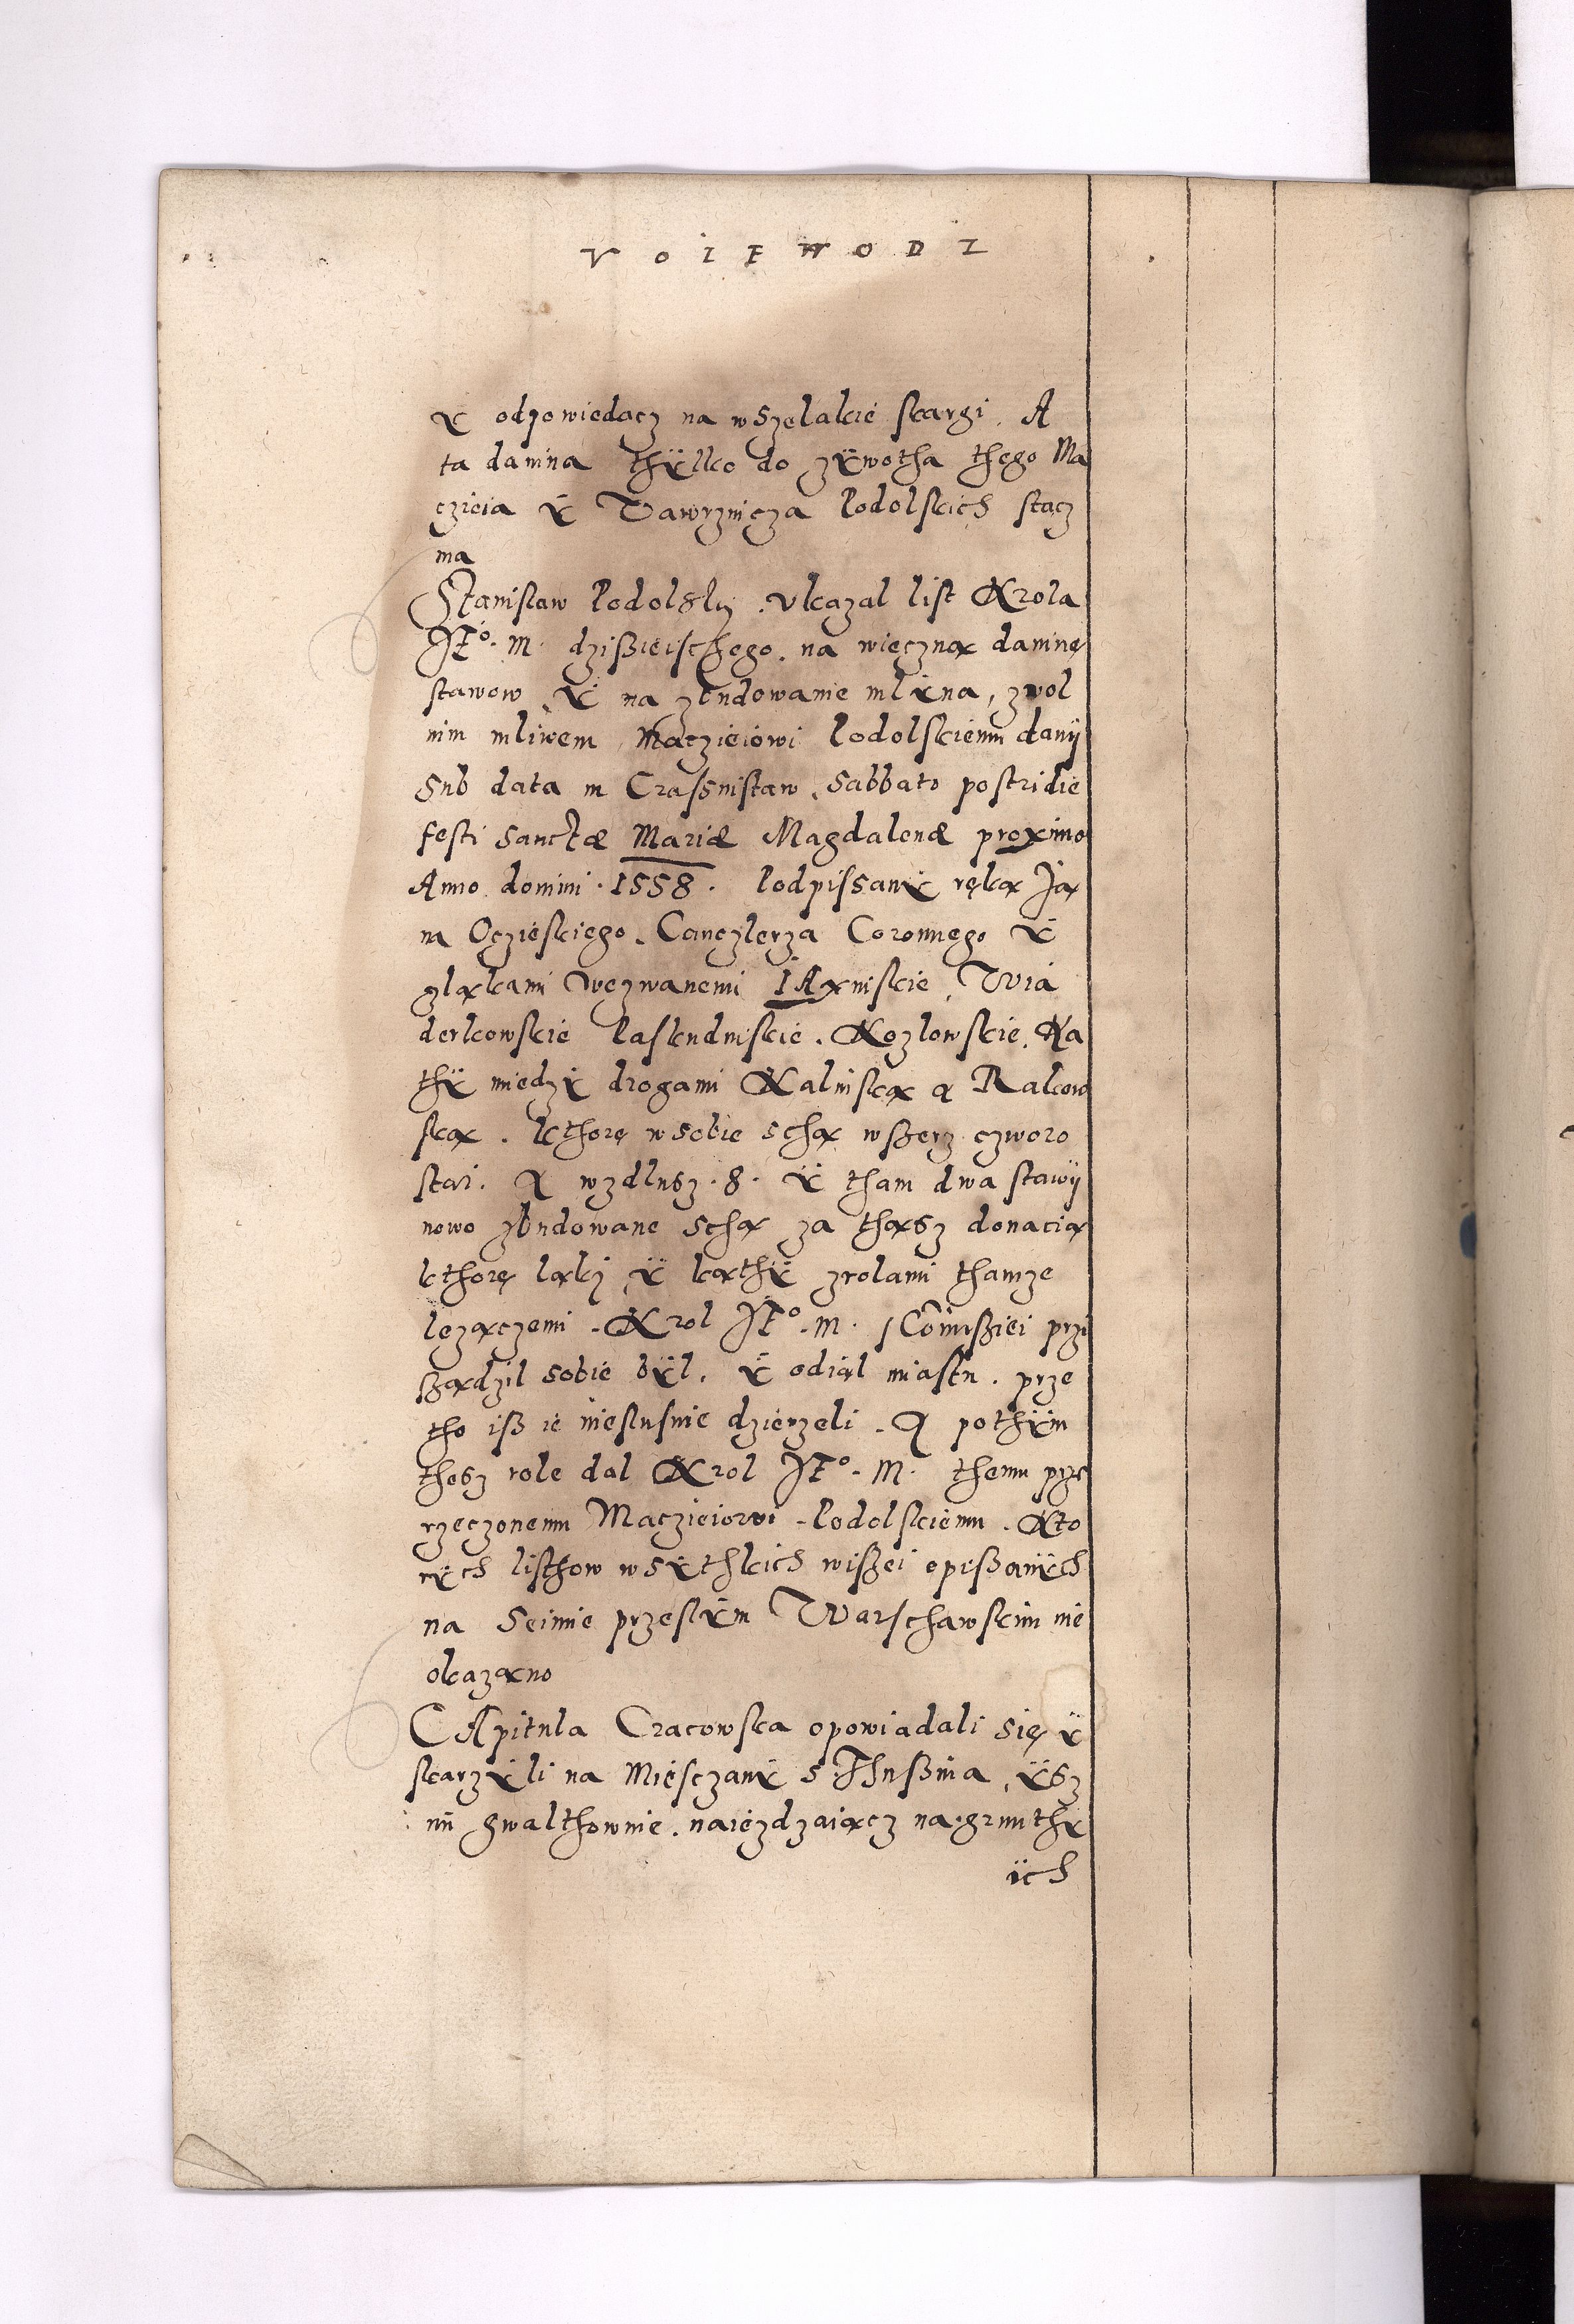 VOIEWODZ
ÿ odpowiedacz na wszelakie skargi. A
ta danina thÿlko do zÿwotha thego Ma
czieia ÿ Wawrzincza Podolskich stacz
ma
Stanislaw Podolsky. ukazal list Krola
JE°. M. dzißieischego. na wieczną daninę
stawow ÿ na zbudowanie mlÿna, zwol
nim mliwem Maczieiowi Podolskiemu danÿ
sub data in Crassnistaw, sabbato postridie
festi sanctæ Mariæ Magdalenæ proximo
Anno domini .1558. Podpissanÿ ręką Ja
na Oczieskiego. Canczlerza Coronnego ÿ
zląkami wezwanemi Iązniskie, Wia
derkowskie Paskudniskie. Kozlowskie. Ką
thÿ miedzÿ drogami Kalinską a Rakow
ską. kthorę wsobie schą wßerz czworo
stai. A wzdlusz .8. ÿ tham dwa stawÿ
nowo zbudowane schą za thąsz donacią
kthorę ląki ÿ kąthÿ zrolami thamze
lezączemi. Krol JE°. M. sComißiei przi
ßądzil sobie bÿl. ÿ odiąl miastu. prze
tho iß ie niesusnie dzierzeli. A pothÿm
thesz role dal Krol JE°. M. themu prze
rzeczonemu Maczieiowi Podolskiemu. Kto
rÿch listhow wsÿthkich wißei opißanÿch
na Seimie przeslÿm Warschawskim nie
okazano
CApitula Cracowska opowiadali się ÿ
skarzÿli na Miesczanÿ s Thußina, ÿsz
im gwalthownie. naiezdzaiącz na grunthÿ
ich